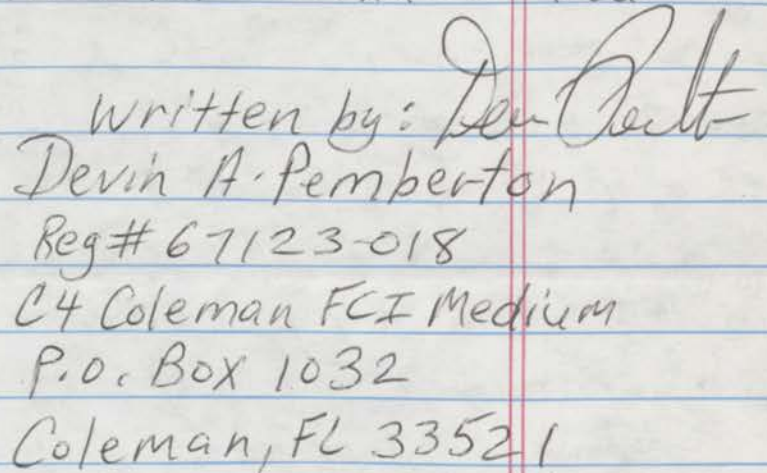 written by:
Devin A. Pemberton
Reg# 67123-018
C4 Coleman FCI Medium
P.O. Box 1032
Coleman, FL 33521